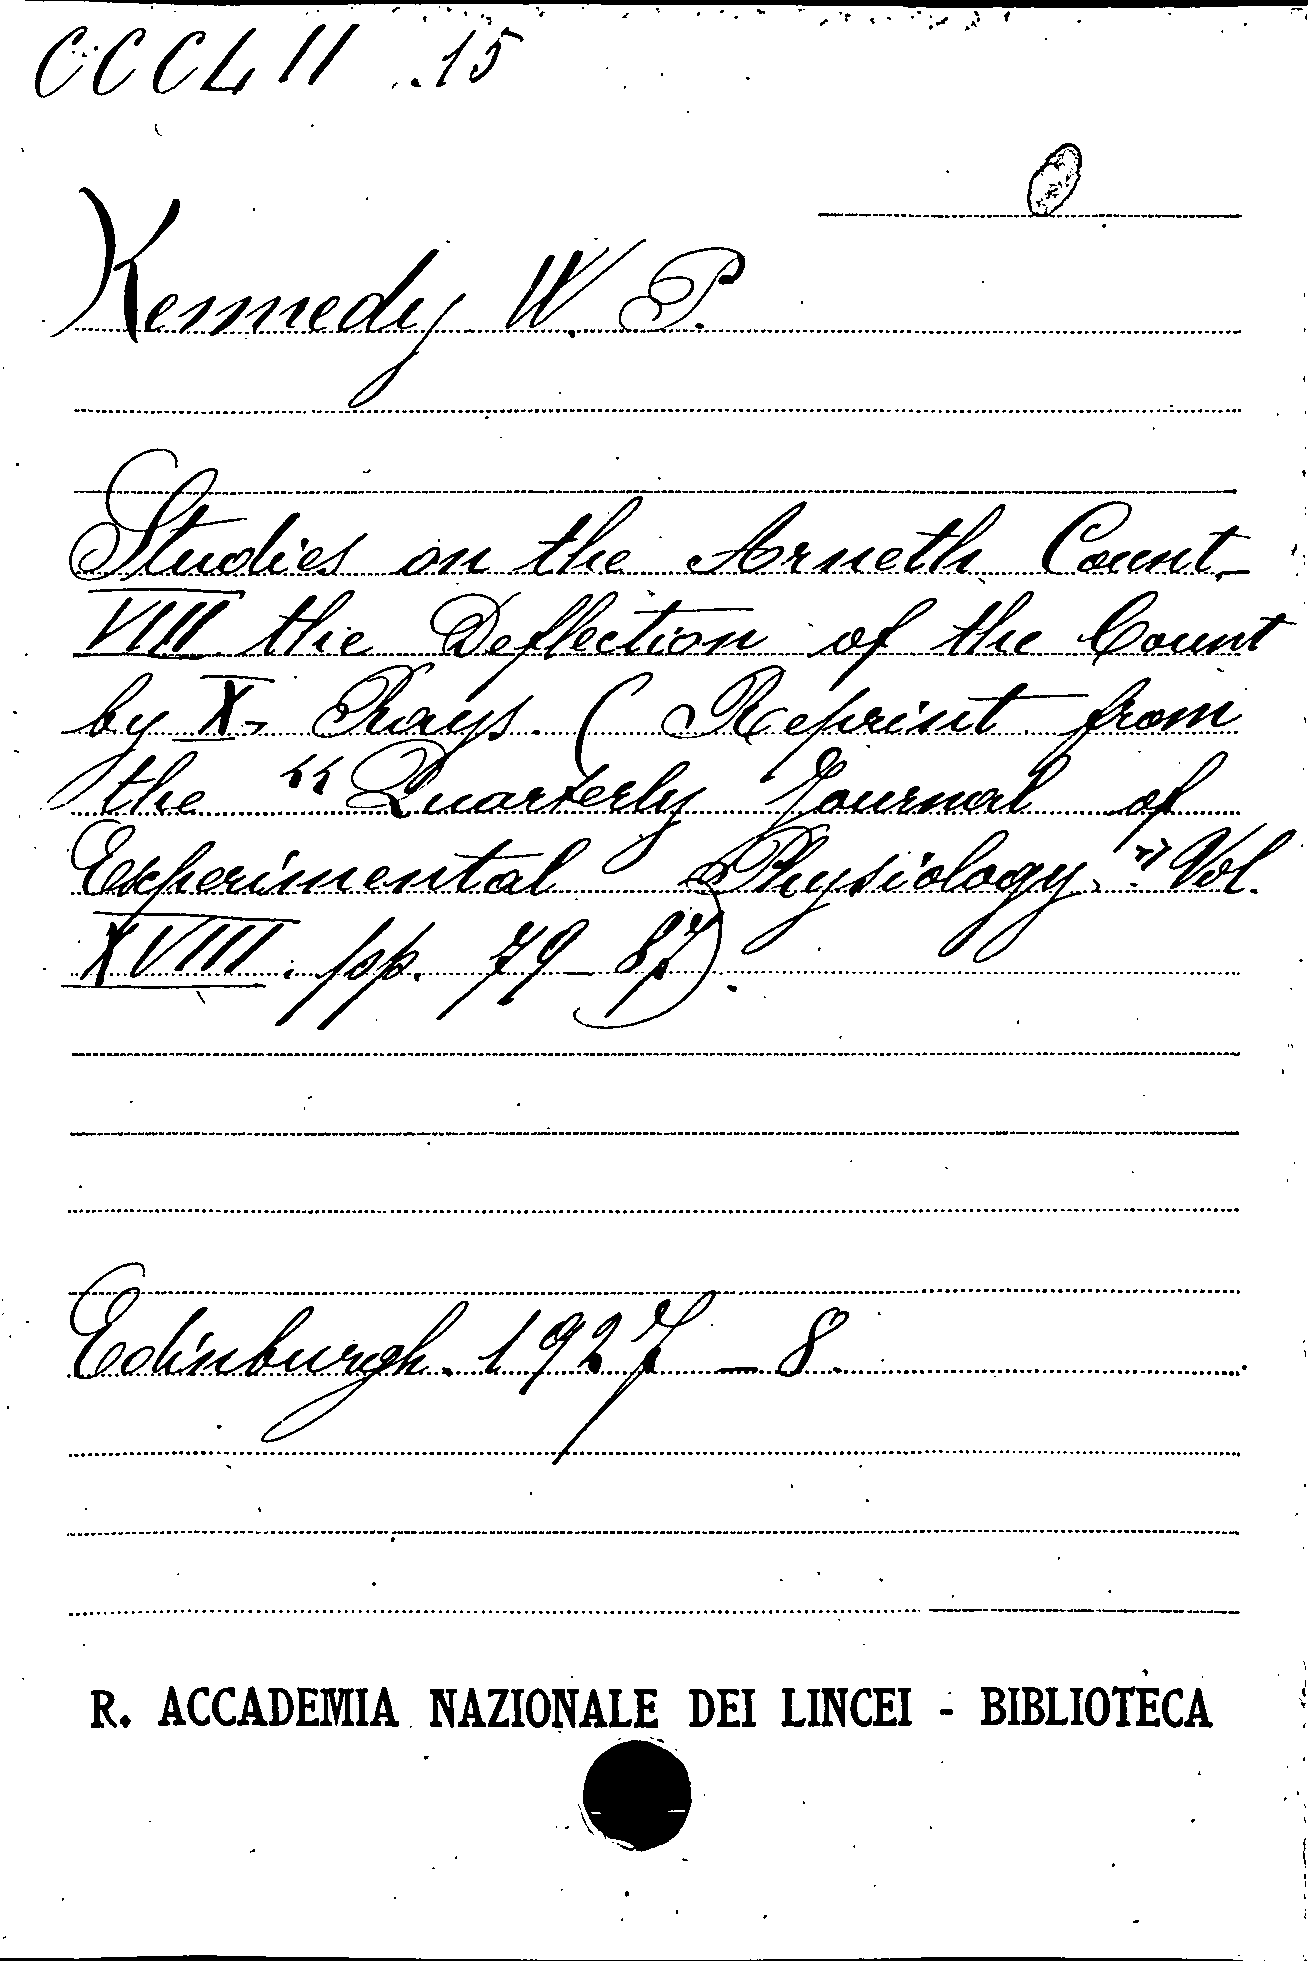 CCCLII .15
Kennedy W. P.
Studies on the Arneth Count_
VIII the Deflection of the Count
by X- Rays. (Reprint from
the "Quarterly Journal of
Experimental Physiology." Vol.
XVIII. pp. 79-87).
Edinburgh. 1927 - 8.
R. ACCADEMIA NAZIONALE DEI LINCEI - BIBLIOTECA